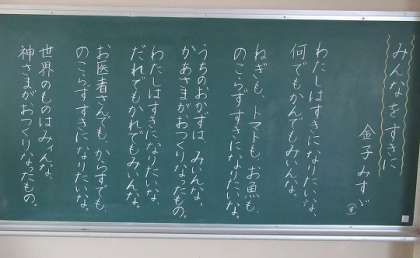 みんなをすきに
金子みすゞ
わたしはすきになりたいな、
何でもかんでもみいんな。
ねぎも、トマトも、お魚も、
のこらずすきになりたいな。
うちのおかずは、みいんな、
かあさまがおつくりなったもの。
わたしはすきになりたいな、
だれでもかれでもみいんな。
お医者さんでも、からすでも、
のこらずすきになりたいな。
世界のものはみィんな、
神さまがおつくりなったもの。